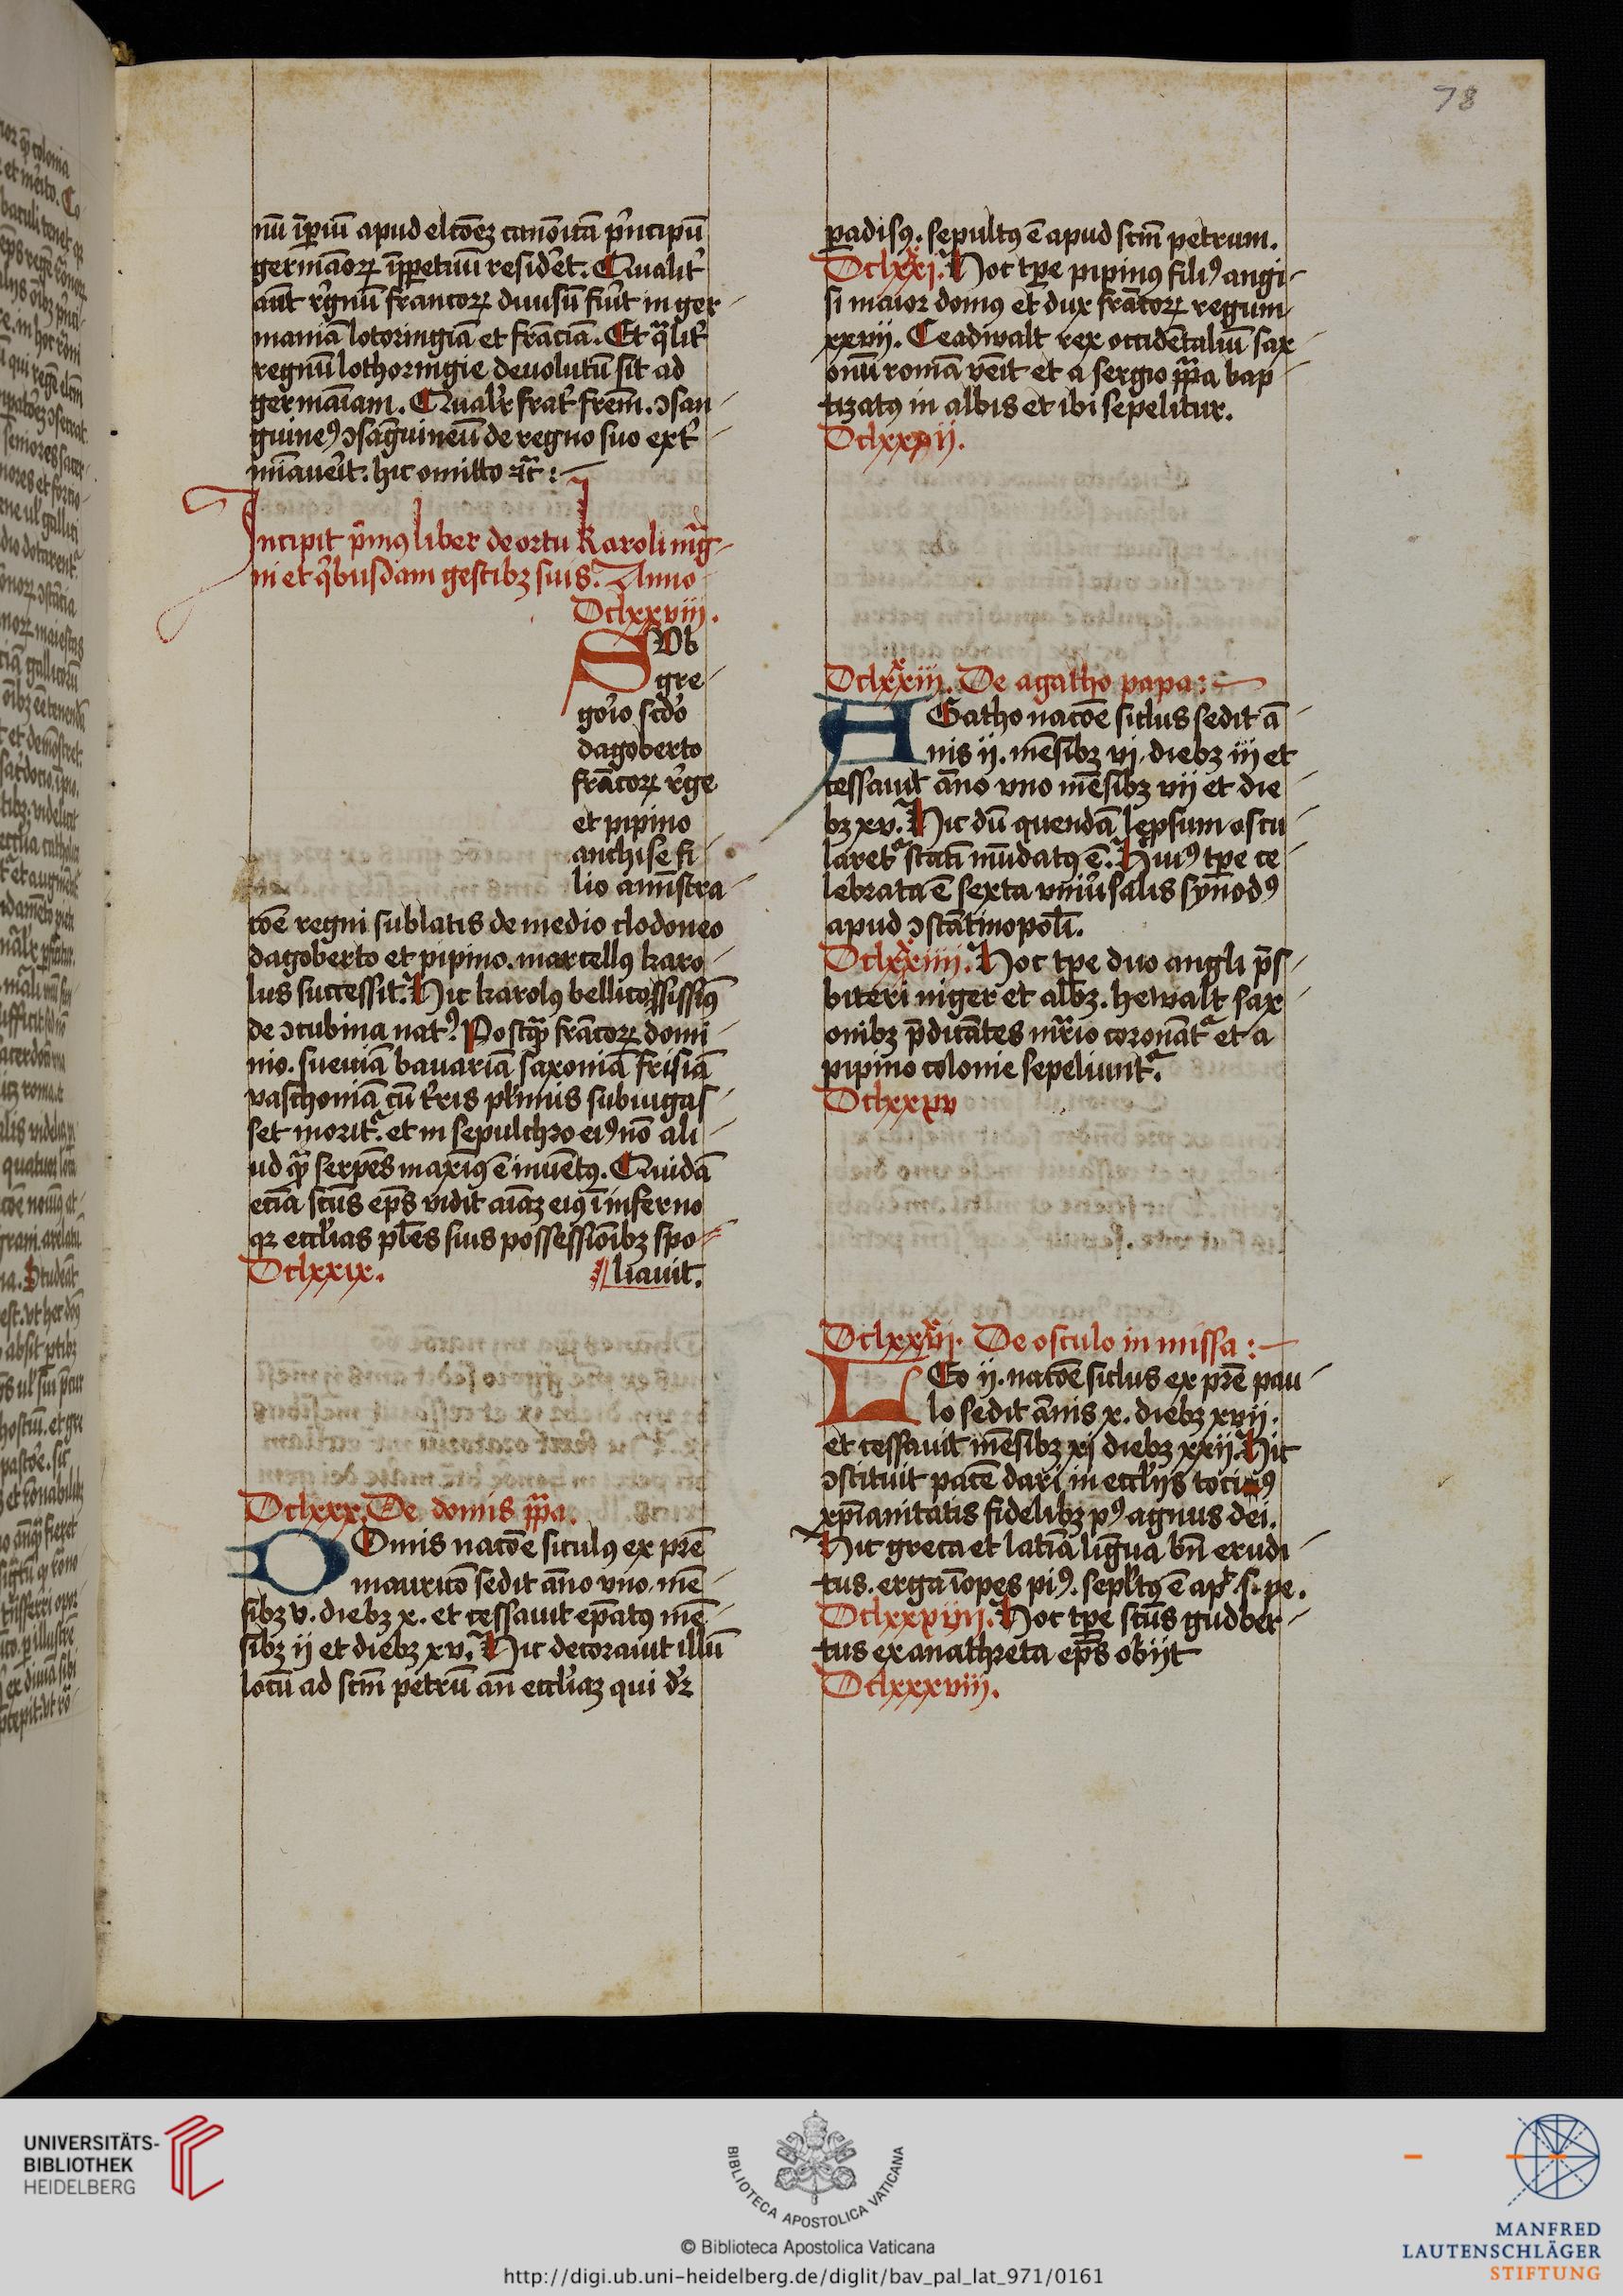 78
nū īperiū apud eltōez canōicā pͥncipū
germāoꝝ īperpetuū residēt. Qualiṫ
aūt rͤgnū francoꝝ diuisū fuͥt in ger
maniā lotoringiā et frāciā. Et qͣliṫ
regnū lothoringie deuolutū sit ad
germāiam. Qualiṙ fraṫ frēm. ↄsan
guineꝰ ↄsāguineū de regno suo exṫ
mīauerīt. hic omitto ꝛcͣ :
Incipit pͥmꝰ liber de ortu Karoli mͣg
ni et qͥbusdam gestibꝫ suis. Anno
Dclxxviij.
SVb
gre
goͥo scd̓o
dagoberto
frācoꝝ rͤge
et pipino
anchise fi
lio aīnistra
cōe regni sublatis de medio clodoueo
dagoberto et pipino. marcellꝰ karo
lus successit. Hic karolꝰ bellicosissīꝰ
de ↄcubina natꝰ. Postqͣꝫ frācoꝝ domi
nio. sueuiā bauariā saxoniā frisiā
vaschoniā cū tͥris pͥmis subiugas
set moritͬ. et in sepulchro eiꝰ nō ali
ud qͣꝫ serpēs maxīꝰ ē inuētꝰ. Quidā
eciā scūs ep̄s vidit aīaꝫ eiꝰ ī inferno
qꝛ eccl̓ias pl̄es suis possessiōibꝫ spo
Dclxxix. liauit.
Dclxxx. De domis pp̄a.
DOmis nacōe siculꝰ ex pr̄e
mauricō sedit āno vno. mē
sibꝫ v. diebꝫ x. et cessauit ep̄atꝰ mē
sibꝫ ij et diebꝫ xv. Hic decorauit illū
locū ad scm̄ petrū an̄ eccl̓iaꝫ qui dͬ
padisꝰ. sepultꝰ ē apud scm̄ petrum.
Dclxxxj. Hoc tp̄e pipinꝰ filiꝰ angi
si maior domꝰ et dux frācoꝝ regum
xxvij. Ceadwalt rex occidētaliū sax
onū romā venīt et a sergio pp̄a bap
tizatꝰ in albis et ibi sepelitur.
Dclxxxij.
Dclxxxiij. De agatho papa:
AGatho nacōe siclus sedit ā
nis ij. mēsibꝫ vj. diebꝫ iij et
cessauit āno vno mēsibꝫ vij et die
bꝫ xv. Hic dū quendā lepsum oscu
laretͬ statī mūdatꝰ ē. Huiꝰ tp̄e ce
lebrata ē sexta vniu̓salis synodꝰ
apud ↄstātinopolī.
Dclxxxiiij. Hoc tp̄e duo angli p̄s
biteri niger et albꝫ. hewalt sax
onibꝫ p̄dicātes mr̄io coronātͬ et a
pipino colonie sepeliuntͬ.
Dclxxxv
Dclxxxvj. De osculo in missa :
LEo ij. nacōe siclus ex pr̄e pau
lo sedit ānis x. diebꝫ xvij.
et cessauit mēsibꝫ xj diebꝫ xxij. Hic
ↄstituit pacē dari in eccl̓ijs tociꝰ
xp̄ianitatis fidelibꝫ pꝰ agnus dei.
Hic greca et latīa līgua bn̄ erudi
tus. erga īopes piꝰ. sepl̓tꝰ ē apͩ. s. pe.
Dclxxxviij. Hoc tp̄e scūs gudber
tus ex anachreta ep̄s obijt
Dclxxxviij.
UNIVERSITÄTS-
BIBLIOTHEK
HEIDELBERG
BIBLIOTECA APOSTOLICA VATICANA
© Biblioteca Apostolica Vaticana
http://digi.ub.uni-heidelberg.de/diglit/bav_pal_lat_971/0161
MANFRED
LAUTENSCHLÄGER
STIFTUNG